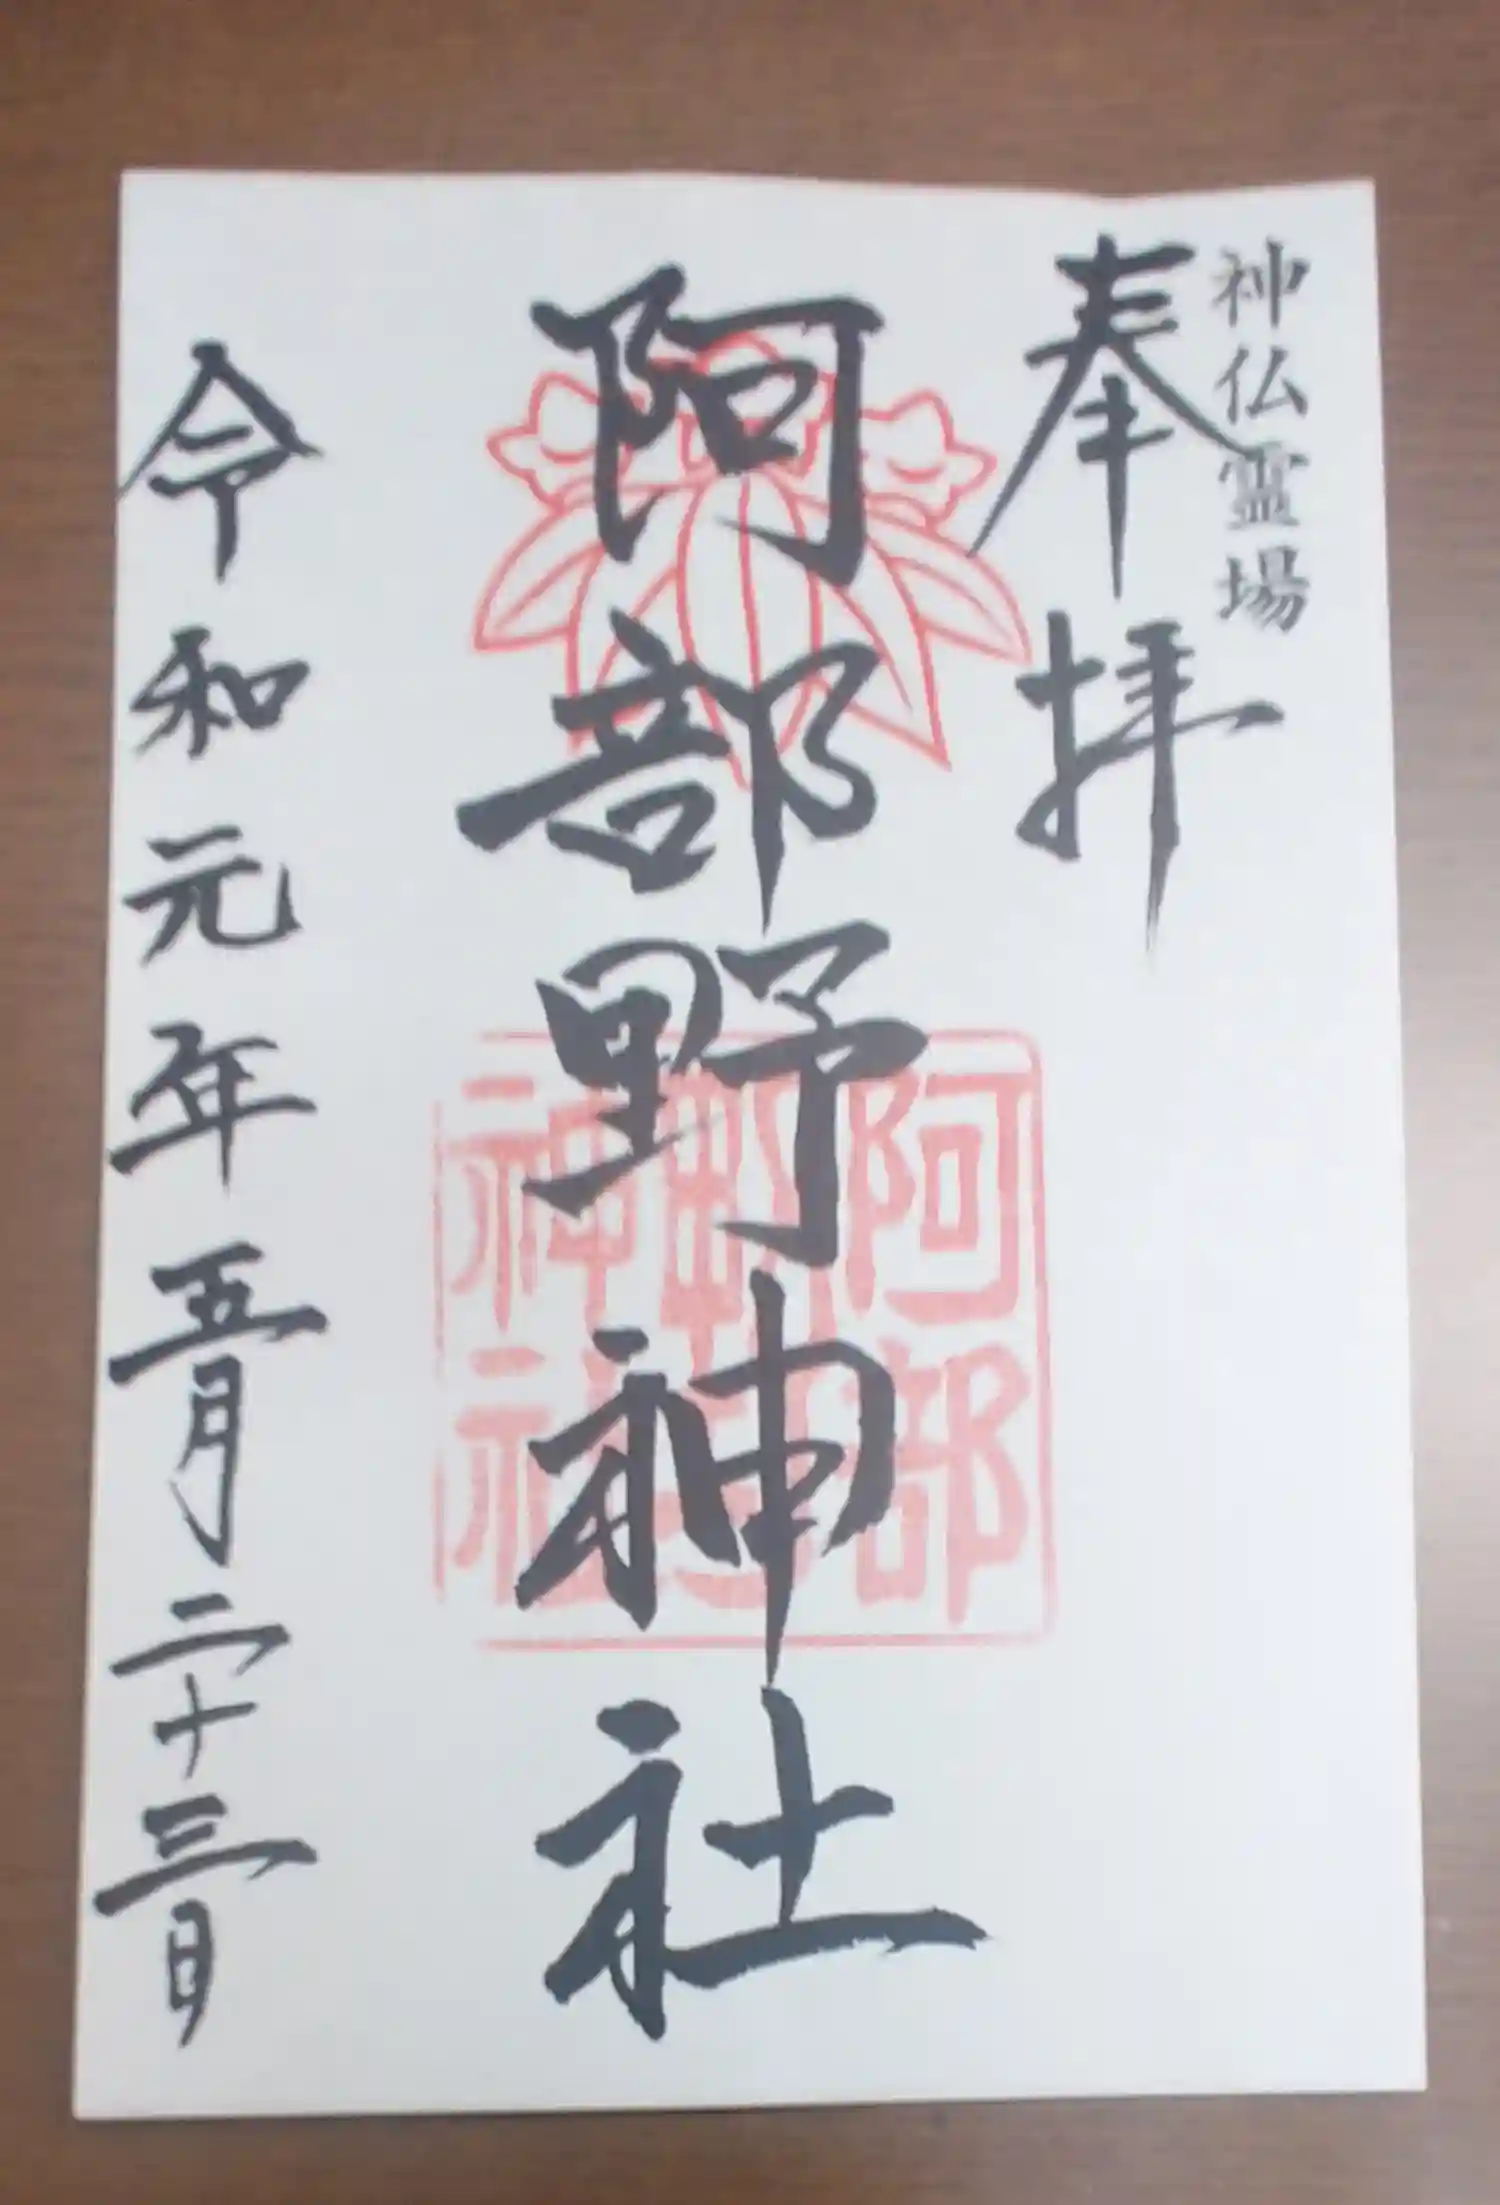 神仏霊場
奉拝
阿部野神社
阿部
野
神社
令和元年五月二十三日